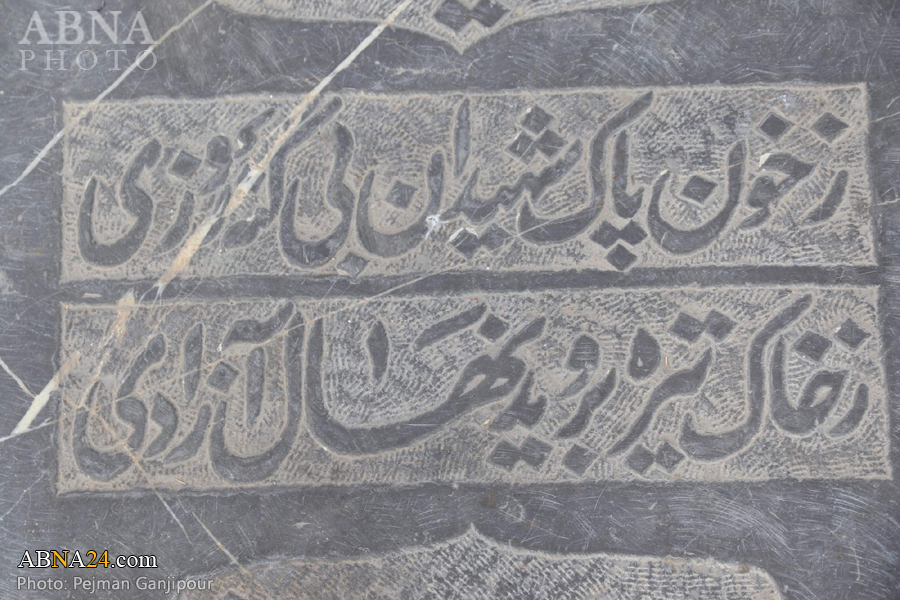 ABNA
PHOTO
ز خون پاک شهیدان بی گنه روزی
ز خاک تیره بروید نهال آزادی
ABNA24.com
Photo: Pejman Ganjipour